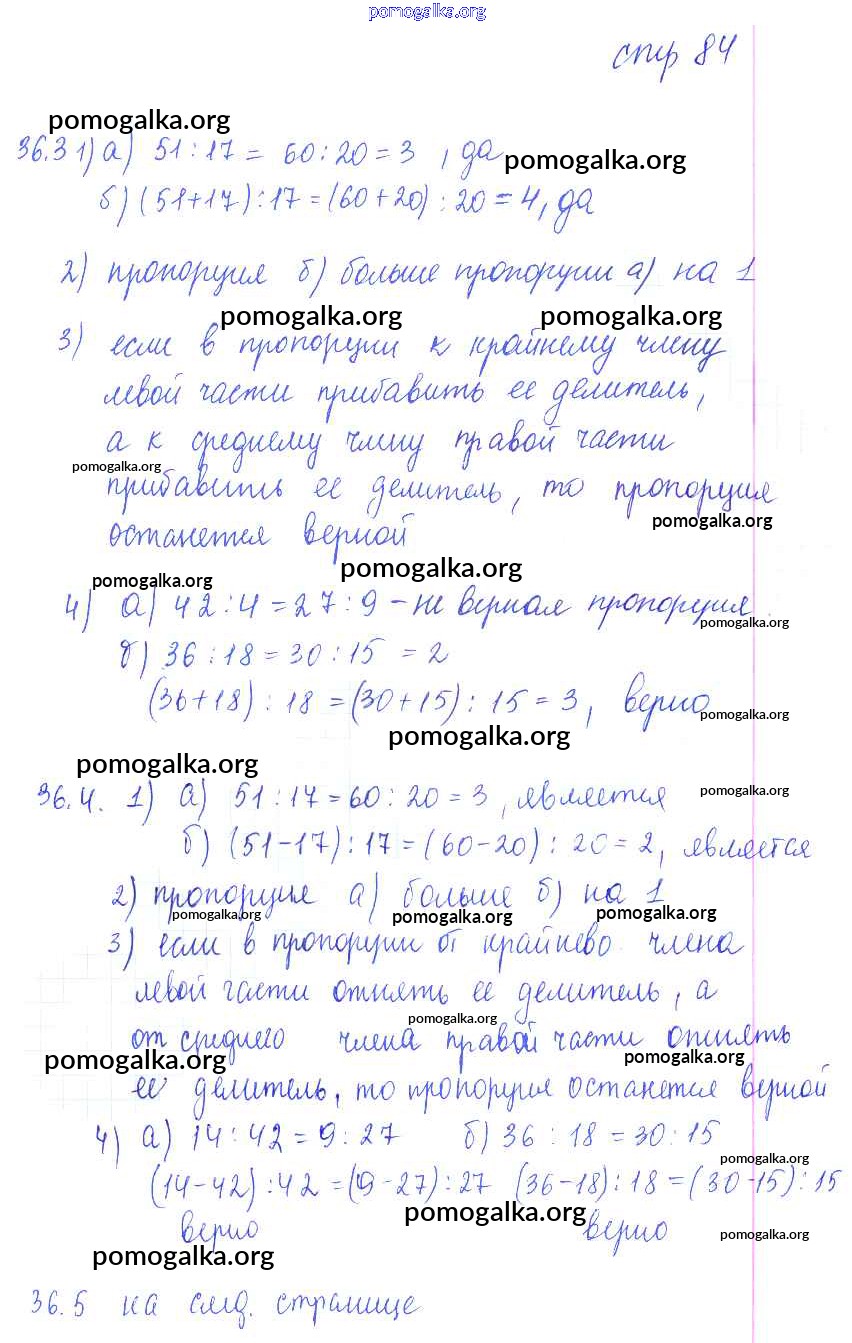 pomogalka.org
стр 84
pomogalka.org
36.3 1) а) 51 : 17 = 60 : 20 = 3 , да pomogalka.org
б) (51+17) : 17 = (60+20) : 20 = 4, да
2) пропорция б) больше пропорции а) на 1
pomogalka.org pomogalka.org
3) если в пропорции к крайнему члену
левой части прибавить ее делитель,
а к среднему члну правой части
pomogalka.org
прибавить ее делитель, то пропорция
pomogalka.org
останется верной
pomogalka.org
pomogalka.org
4) а) 42 : 4 = 27 : 9 – не верная пропорция
pomogalka.org
б) 36 : 18 = 30 : 15 = 2
(36+18) : 18 = (30+15) : 15 = 3, верно
pomogalka.org
pomogalka.org
pomogalka.org
36.4. 1) а) 51 : 17 = 60 : 20 = 3 , является
pomogalka.org
б) (51-17) : 17 = (60-20) : 20 = 2, является
2) пропорция а) больше б) на 1
pomogalka.org pomogalka.org pomogalka.org
3) если в пропорции от крайнево члена
левой части отнять ее делитель, а
pomogalka.org
от среднего члена правой части отнять
pomogalka.org pomogalka.org
ее делитель, то пропорция останется верной
4) а) 14 : 42 = 9 : 27 б) 36 : 18 = 30 : 15
pomogalka.org
(14-42) : 42 = (9-27) : 27 (36-18) : 18 = (30-15) : 15
pomogalka.org
верно верно
pomogalka.org
pomogalka.org
36.5 на след. странице